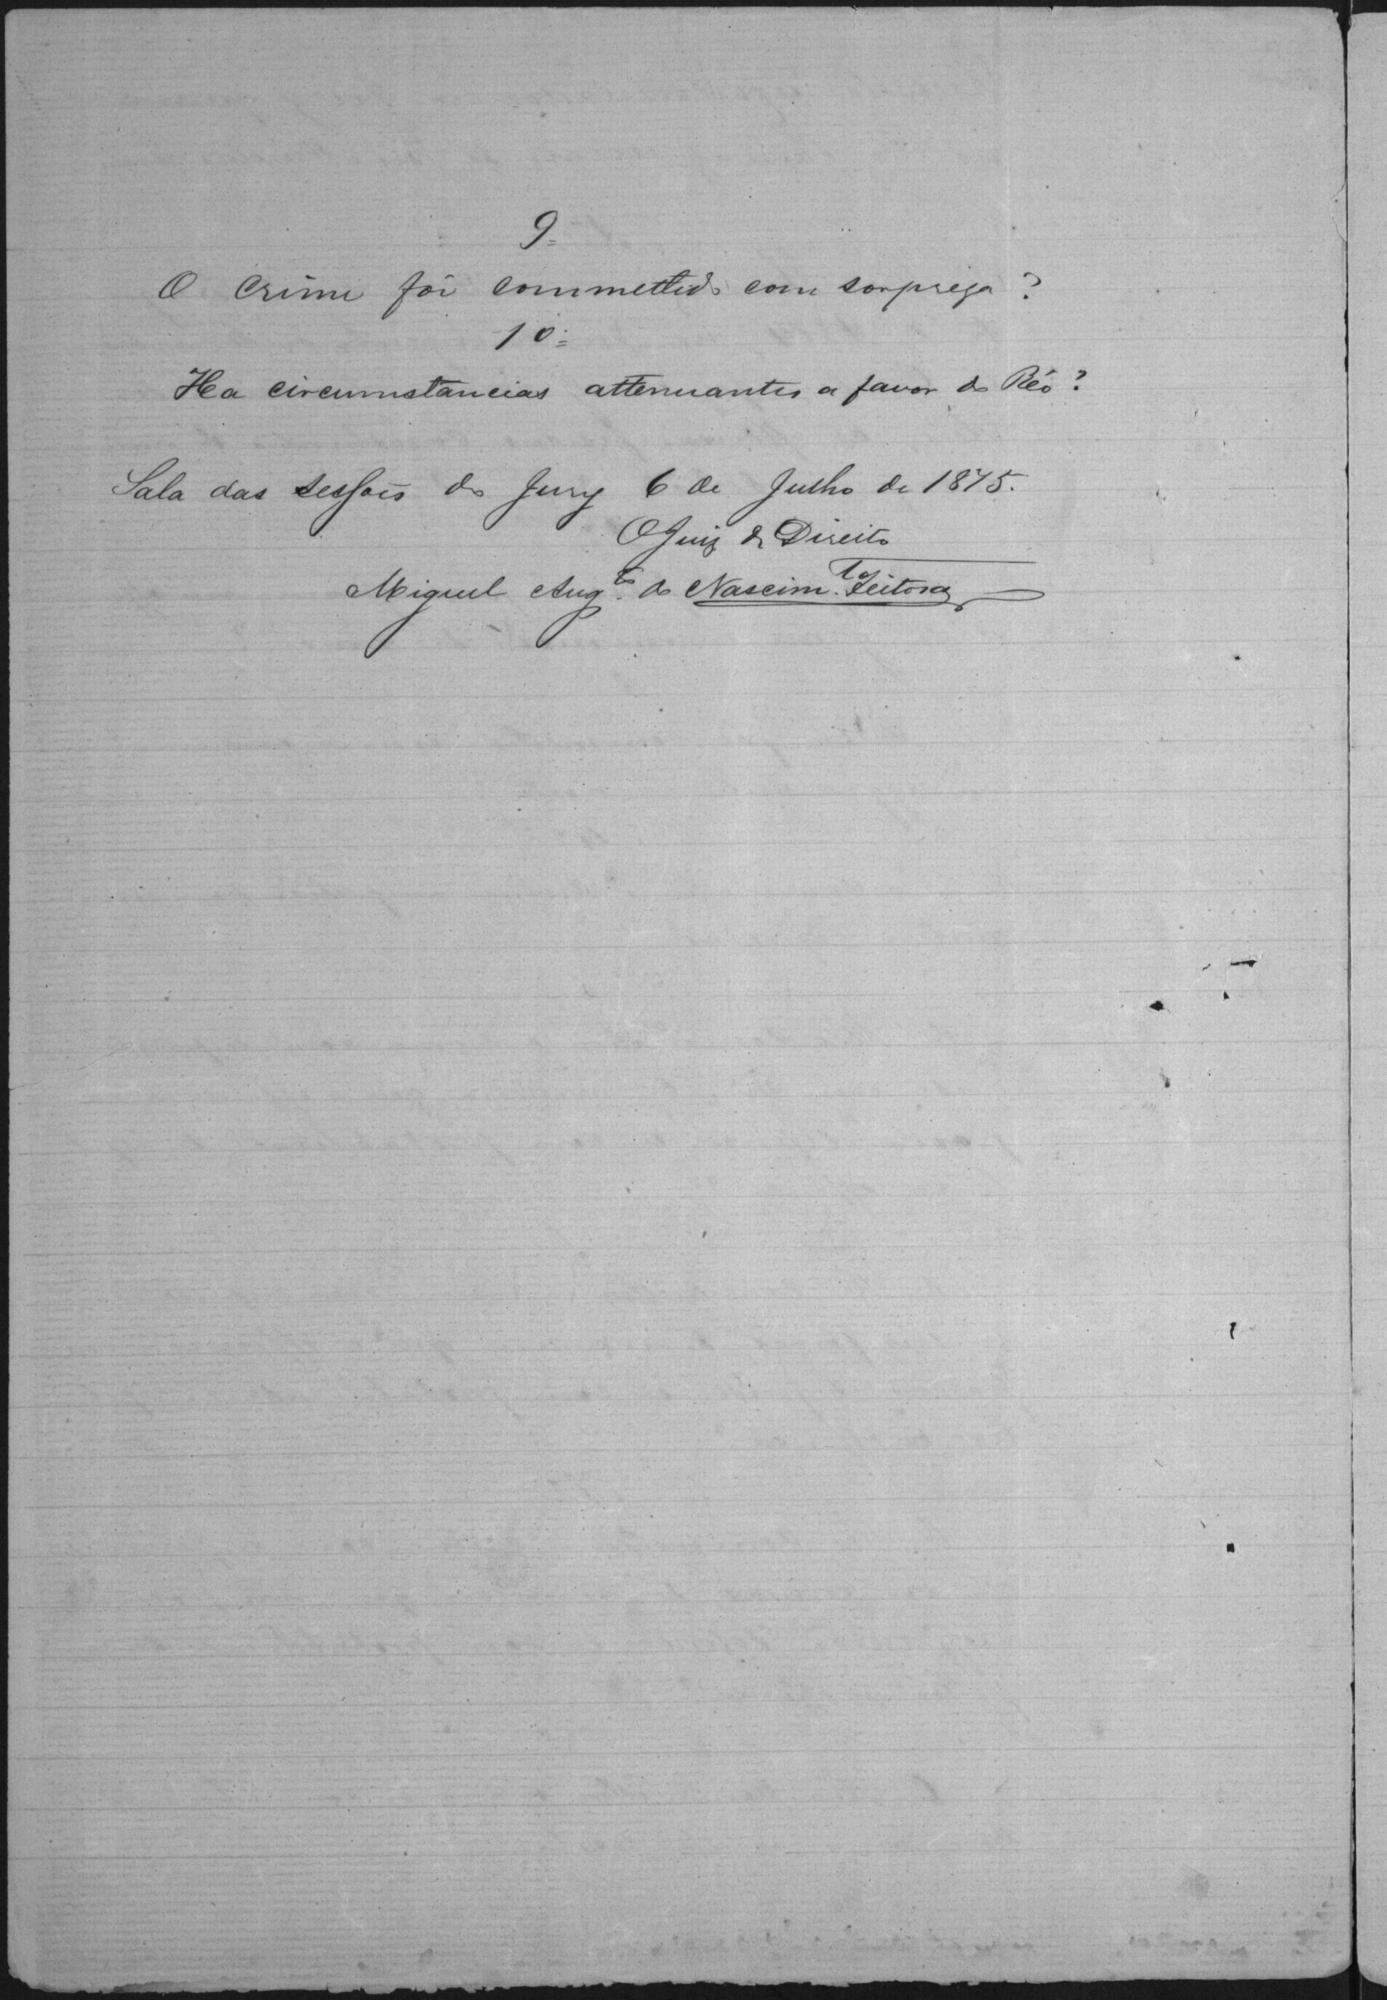 9.
O crime foi commettido com sorpreza?
10.
Ha circumstancias attenuantes a favor do Réo?
Sala das sessões do Jury 6 de Julho de 1875.
O Juiz de Direito
Miguel Aug.to do Nascim.to Feitosa